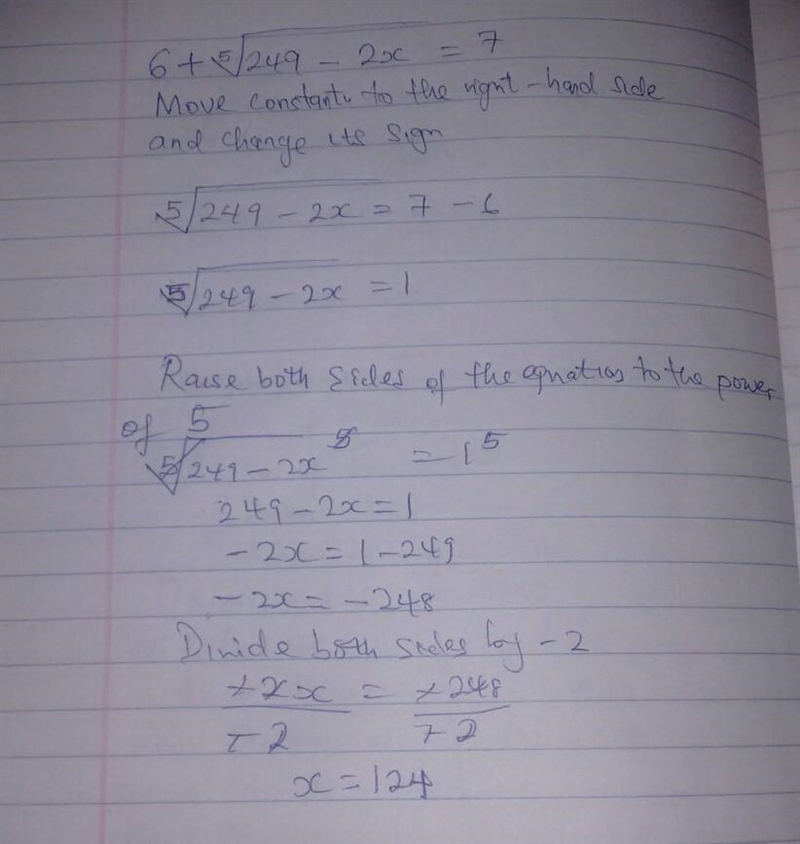 6 + ⁵√249 - 2x = 7
Move constant to the right-hand side
and change its sign
⁵√249 - 2x = 7 - 6
⁵√249 - 2x = 1
Raise both sides of the equation to the power
of 5
⁵√249 - 2x ⁵ = 1⁵
249 - 2x = 1
-2x = 1 - 249
-2x = -248
Divide both sides by -2
-2x/-2 = -248/-2
x = 124